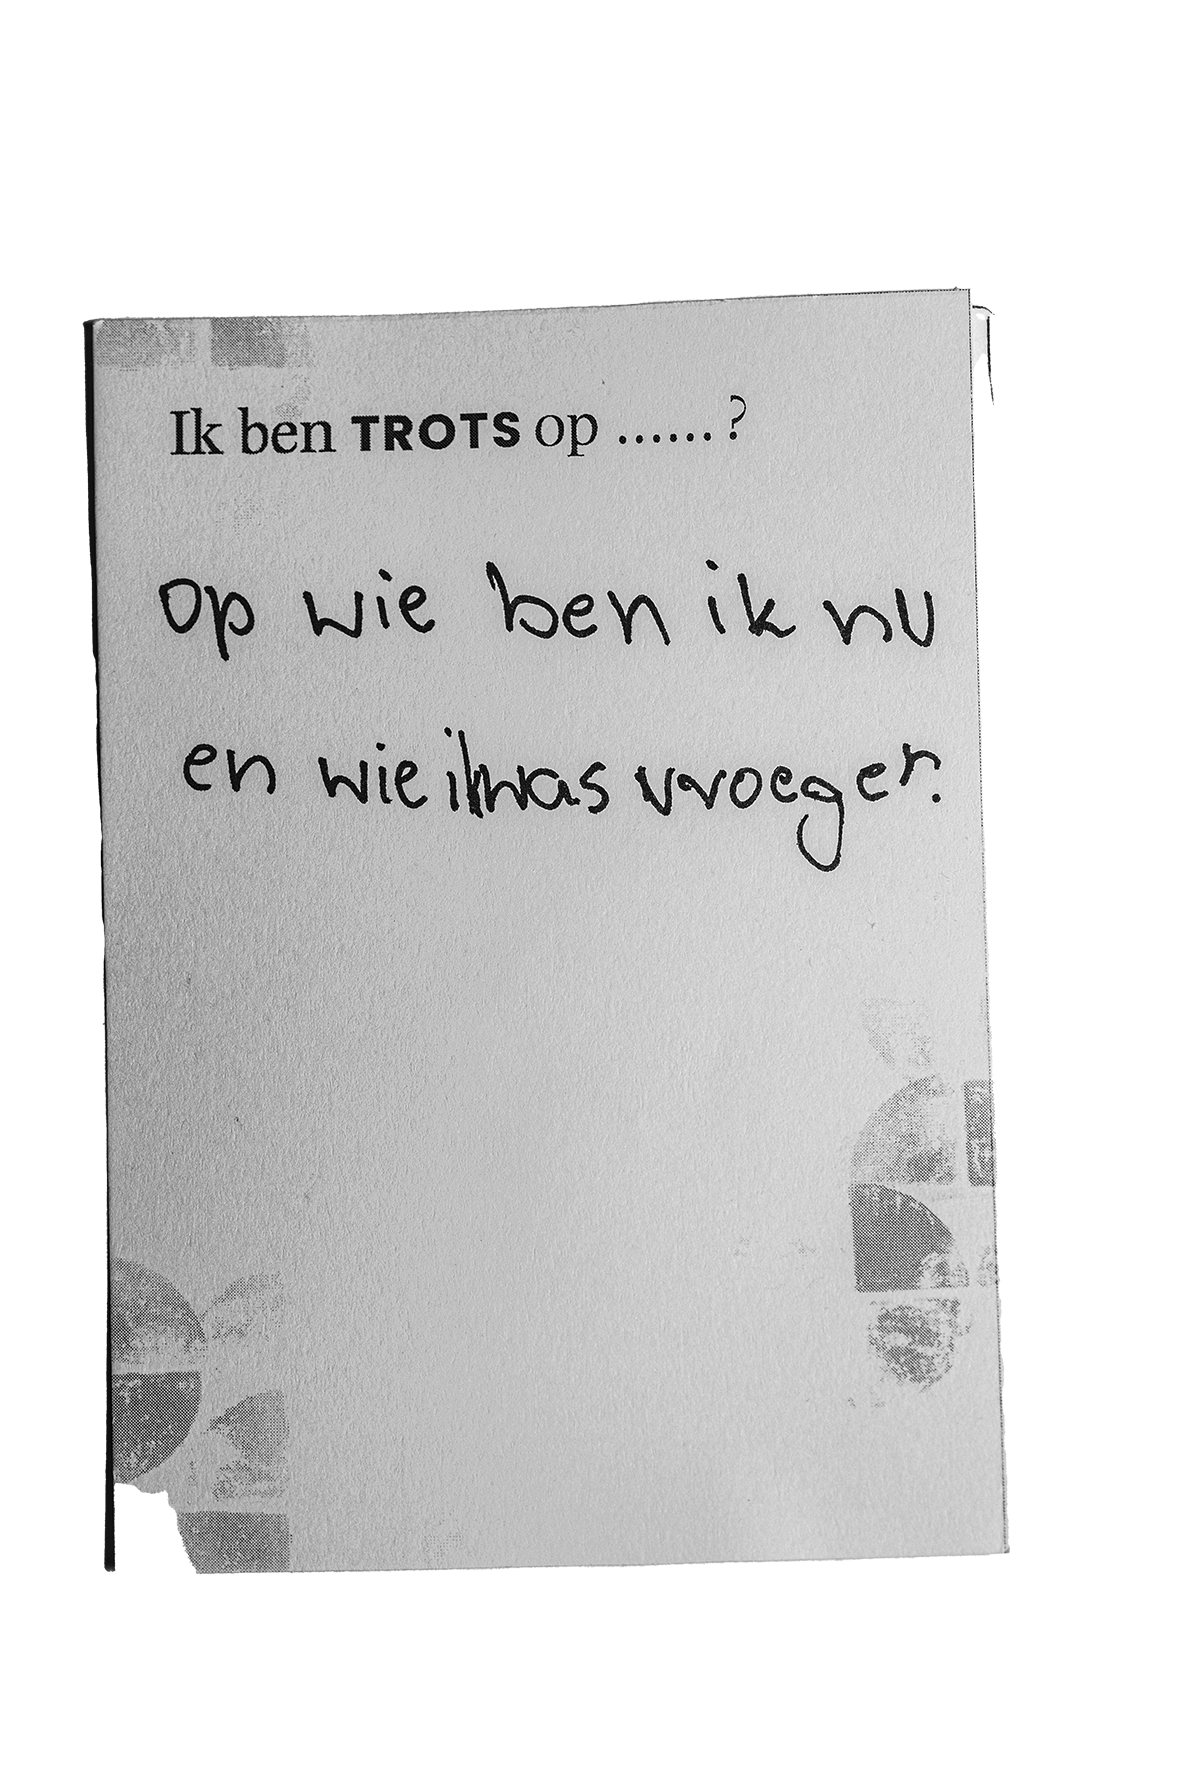 Ik ben TROTS op ......?
op wie ben ik nu
en wie ik was vroeger.